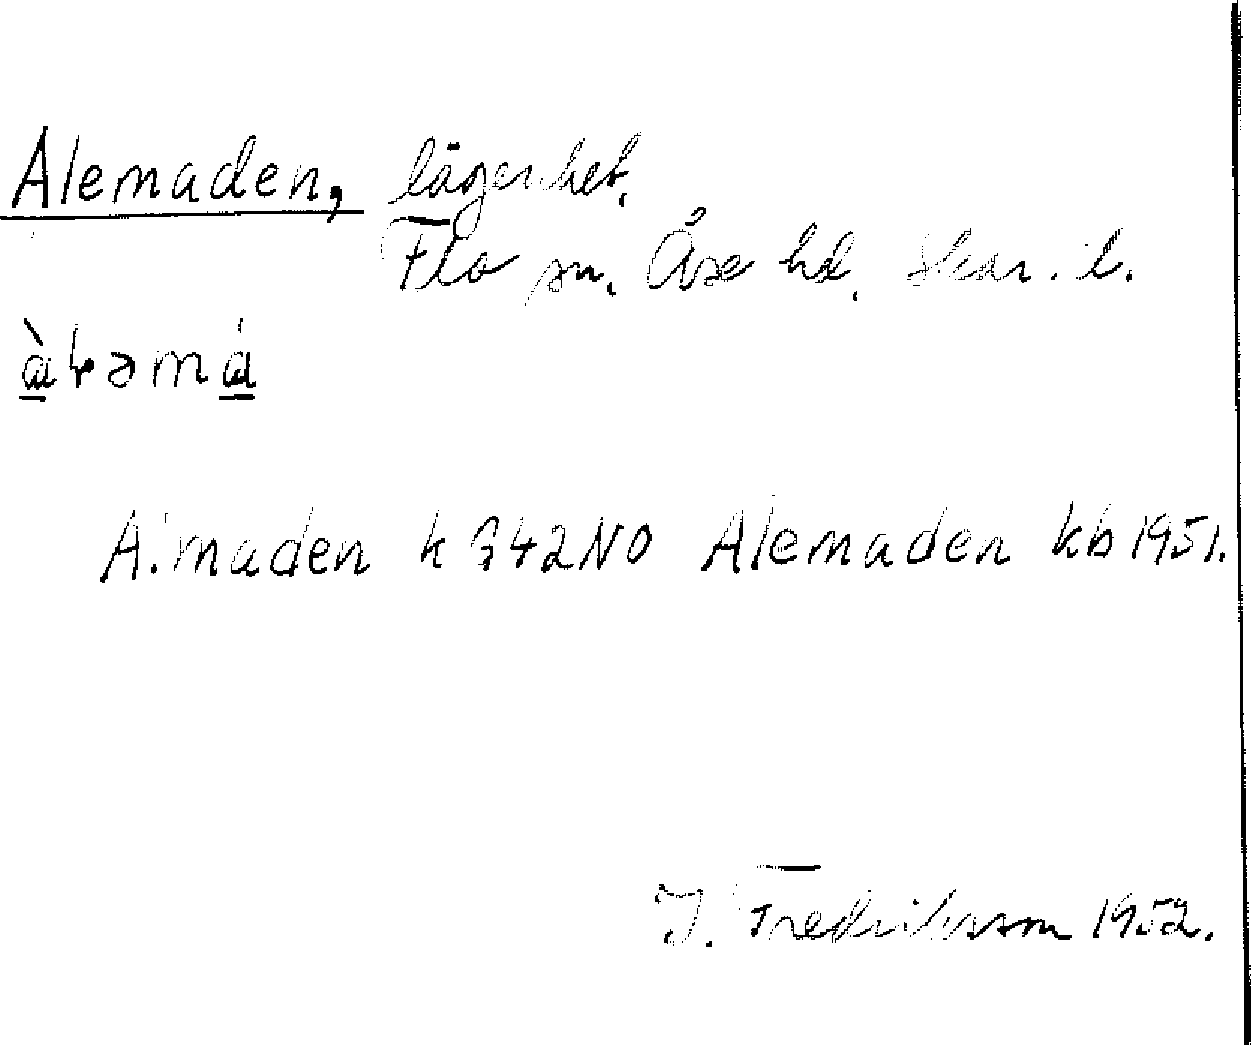 Alemaden, lägenhet.
Flo sn. Åse hd. Skar. l.
Almaden k G42NO Alemaden kb 1951.
J. Fredriksson 1952.